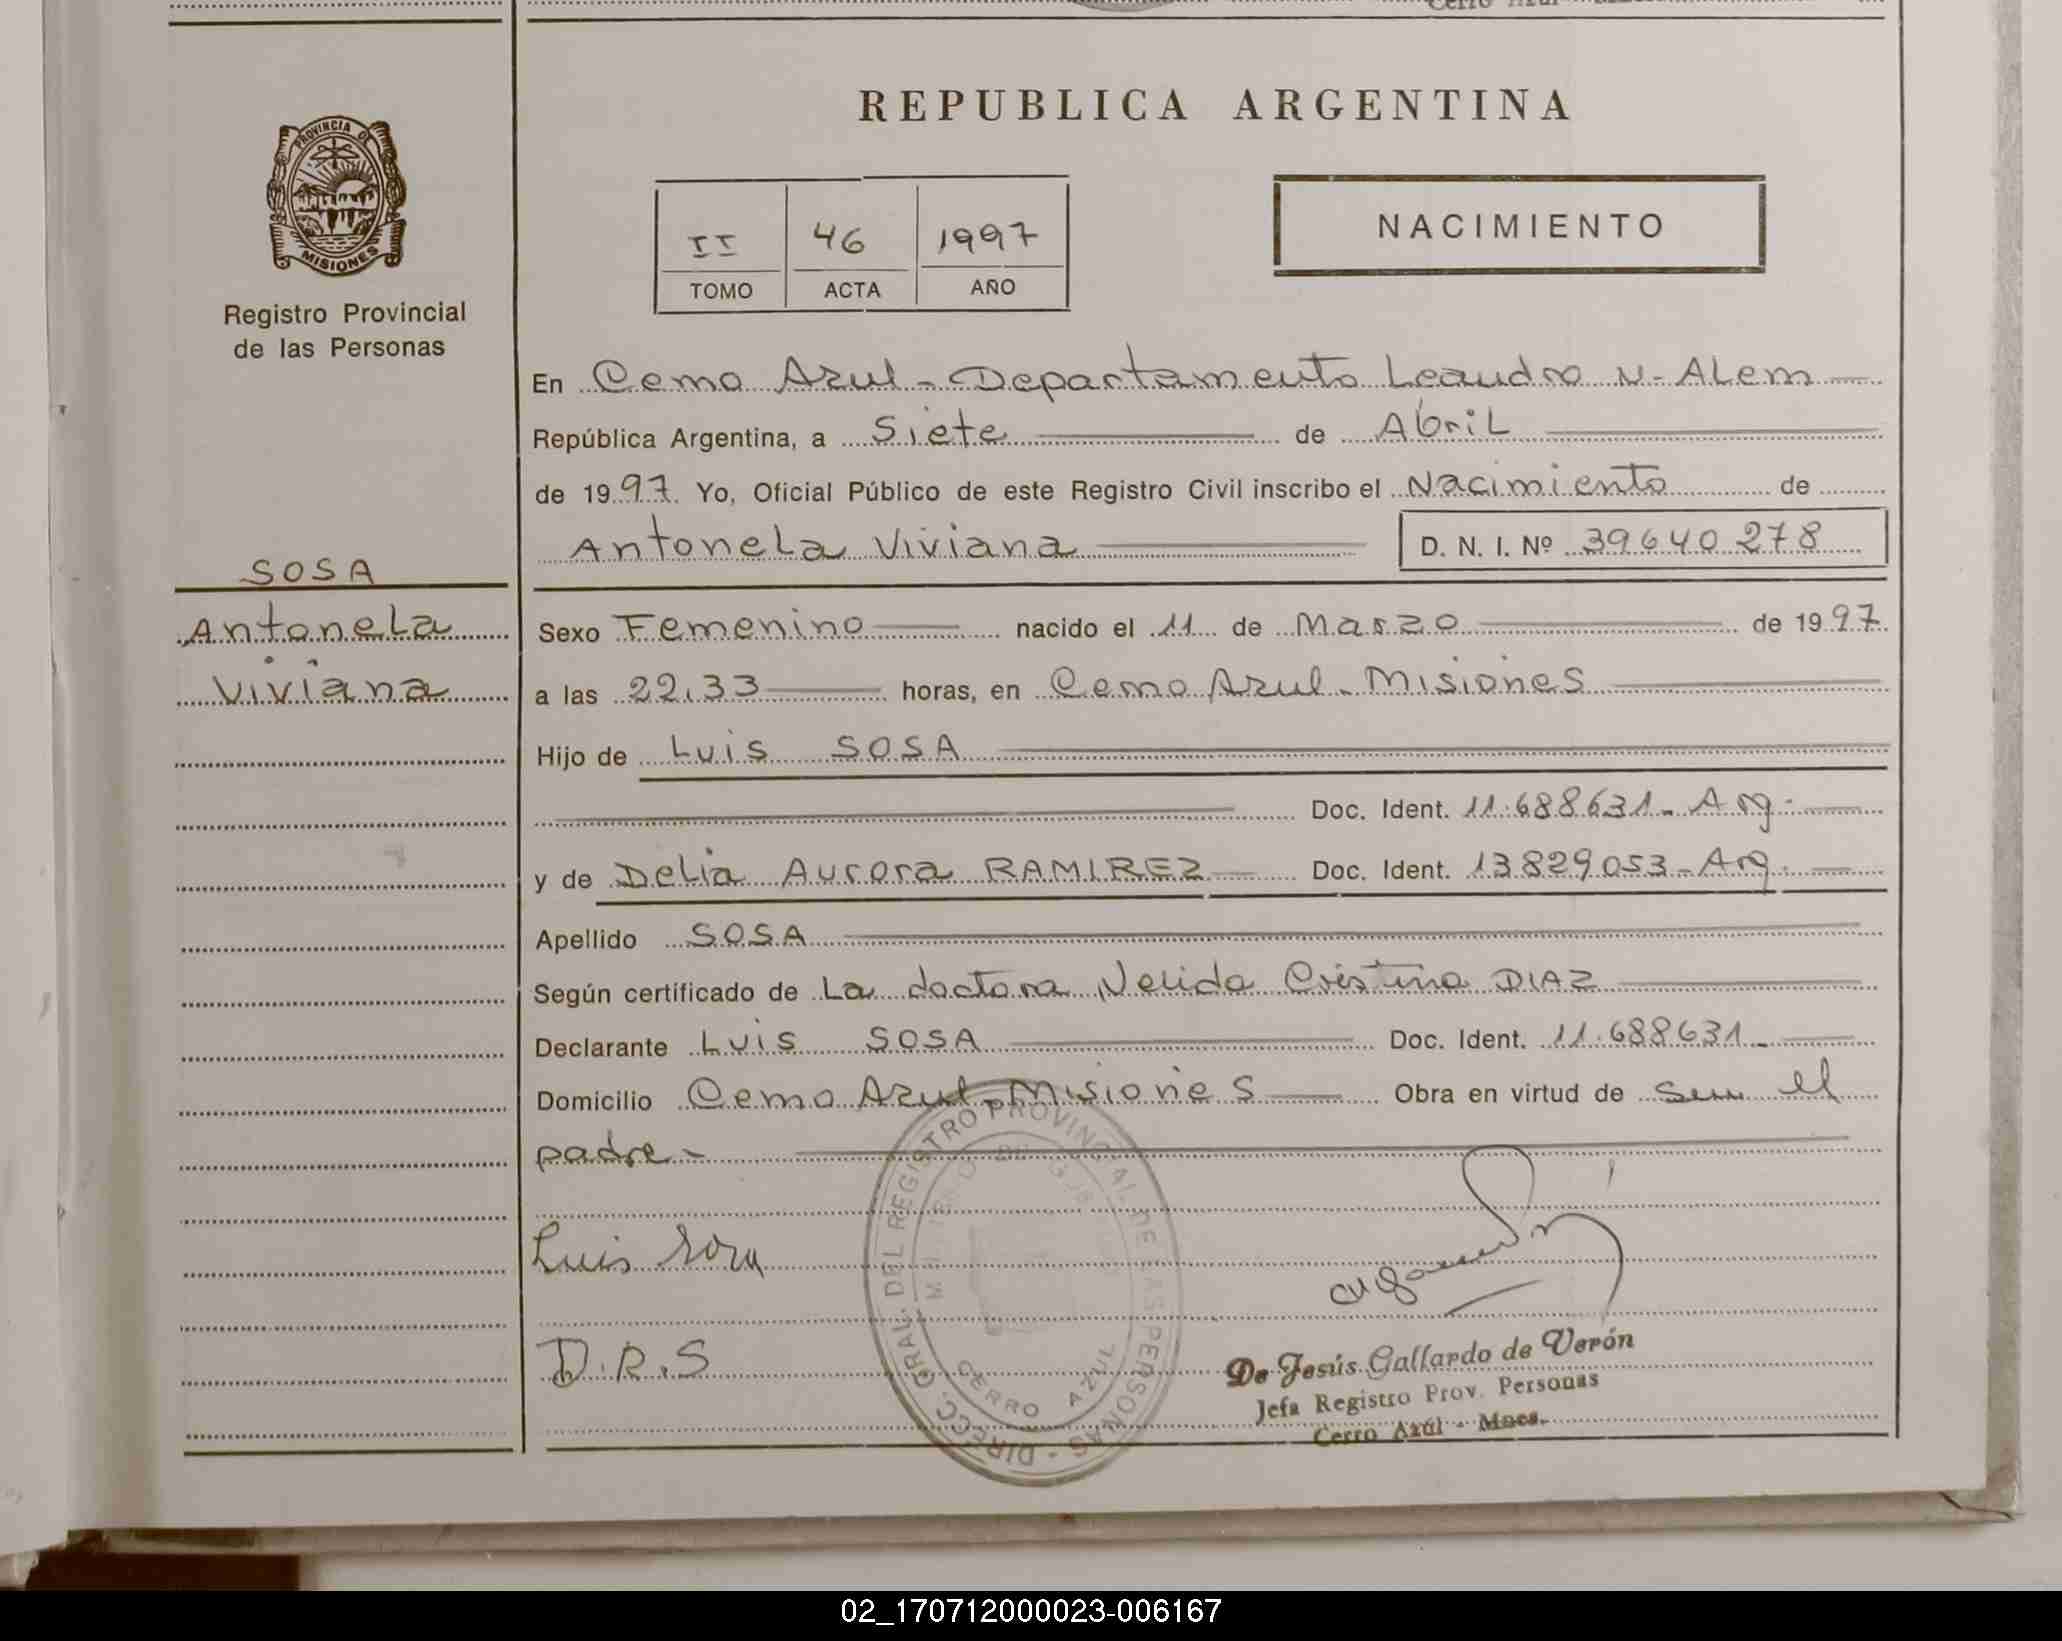 REPUBLICA ARGENTINA
PROVINCIA DE
MISIONES
Registro Provincial
de las Personas
II 46 1997
TOMO ACTA AÑO
NACIMIENTO
En Cerro Azul - Departamento Leandro N. ALem
República Argentina, a Siete de AbriL
de 1997. Yo, Oficial Público de este Registro Civil inscribo el Nacimiento de
AntoneLa Viviana D. N. I. Nº 39640278
SOSA
AntoneLa
Viviana
Sexo Femenino nacido el 11 de Marzo de 1997.
a las 22,33 horas, en Cerro Azul - Misiones
Hijo de Luis SOSA
Doc. Ident. 11.688631 - Arg.
y de DeLia Aurora RAMIREZ Doc. Ident. 13829053 - Arg.
Apellido SOSA
Según certificado de La doctora Nelida Cristina DIAZ
Declarante Luis SOSA Doc. Ident. 11.688631 -
Domicilio Cerro Azul - Misiones Obra en virtud de ser el
padre -
Luis Sosa
D.R.S
DIRECC. GRAL. DEL REGISTRO PROVINCIAL DE LAS PERSONAS -
CERRO AZUL
De Jesús Gallardo de Verón
Jefa Registro Prov. Personas
Cerro Azúl - Mnes.
02_170712000023-006167